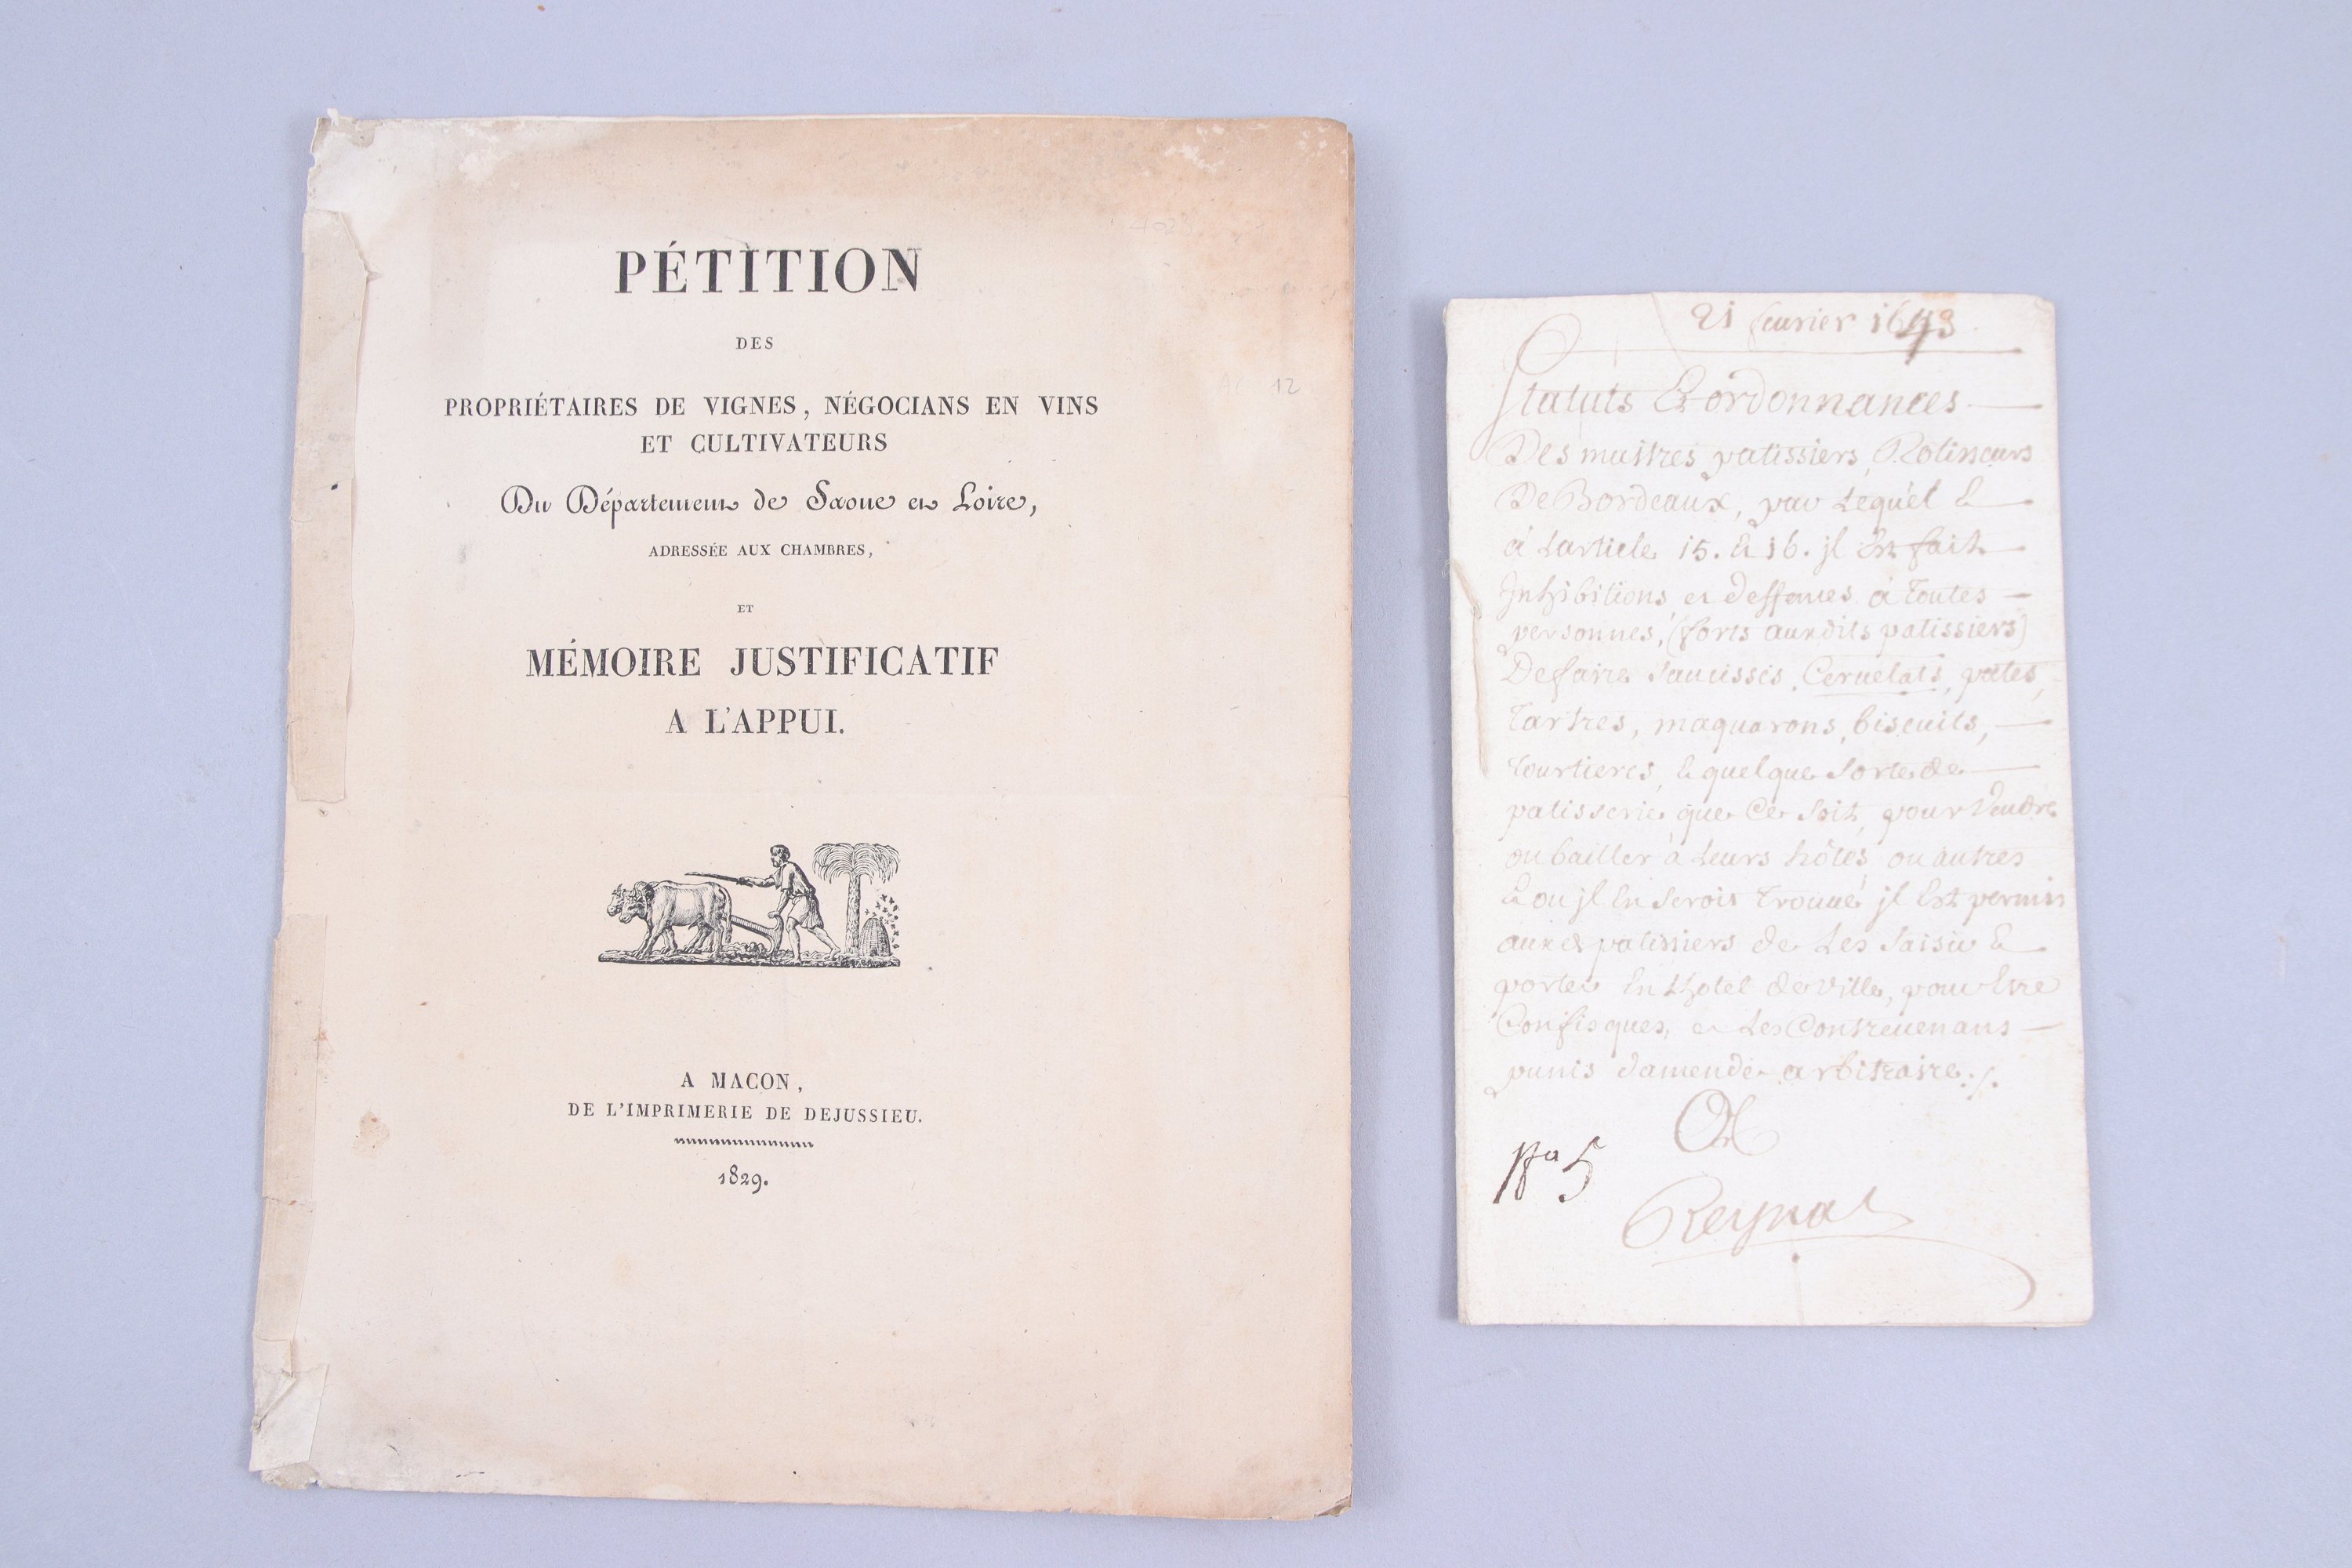 PÉTITION
DES
PROPRIÉTAIRES DE VIGNES, NÉGOCIANS EN VINS
ET CULTIVATEURS
Du Département de Saone et Loire,
ADRESSÉE AUX CHAMBRES,
ET
MÉMOIRE JUSTIFICATIF
A L'APPUI.
A MACON,
DE L'IMPRIMERIE DE DEJUSSIEU.
1829.
12
21 feurier 1643
Statuts & ordonnances
Des maitres patissiers, Rotisseurs
De Bordeaux, par Lequel &
á Larticle 15. & 16. jl Est fait
Inhibitions et deffences á toutes
personnes, (fors auxdits patissiers)
De faire saucisses, Ceruelats, patés,
Tartres, maquarons, biscuits,
tourtieres, & quelque sorte de
patisserie que Ce soit, pour Vendre
ou bailler á Leurs hôtes, ou autres
& ou jl En seroit trouué jl Est permis
auxd patissiers de Les saisir &
porter En Lhotel de Ville, pour Etre
Confisqués, et Les Contreuenans
punis damende arbitraire ./.
No 5
Reynal